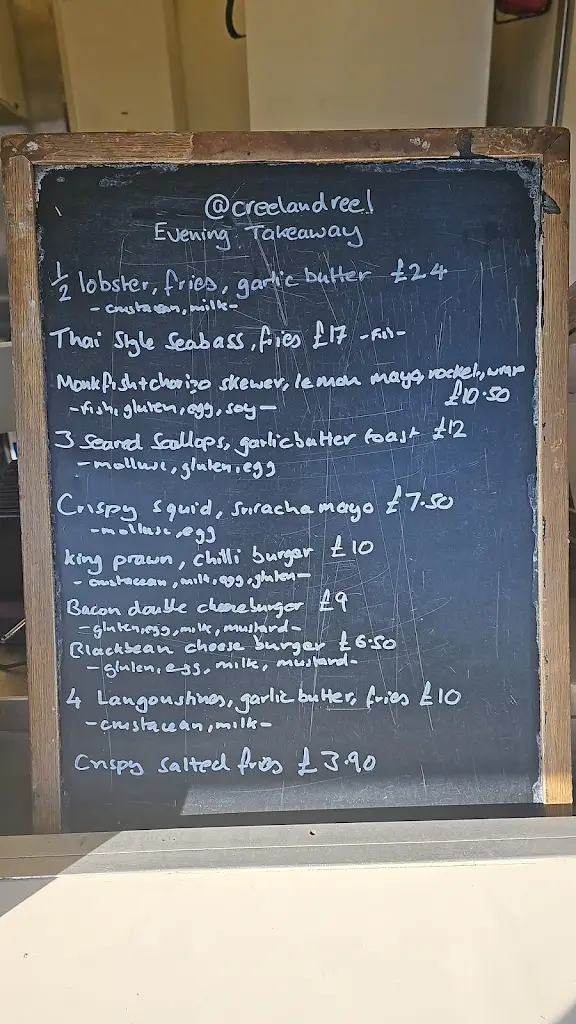 @creelandreel
Evening Takeaway
1/2 lobster, fries, garlic butter £24
- crustacean, milk -
Thai Style Seabass, fries £17 - fish -
Monkfish + chorizo skewer, lemon mayo, rocket, wrap
£10.50
- fish, gluten, egg, soy -
3 Seared Scallops, garlic butter toast £12
- mollusc, gluten, egg
Crispy squid, sriracha mayo £7.50
- mollusc, egg
King prawn, chilli burger £10
- crustacean, milk, egg, gluten -
Bacon double cheeseburger £9
- gluten, egg, milk, mustard -
Blackbean cheese burger £6.50
- gluten, egg, milk, mustard -
4 Langoustines, garlic butter, fries £10
- crustacean, milk -
Crispy salted fries £3.90